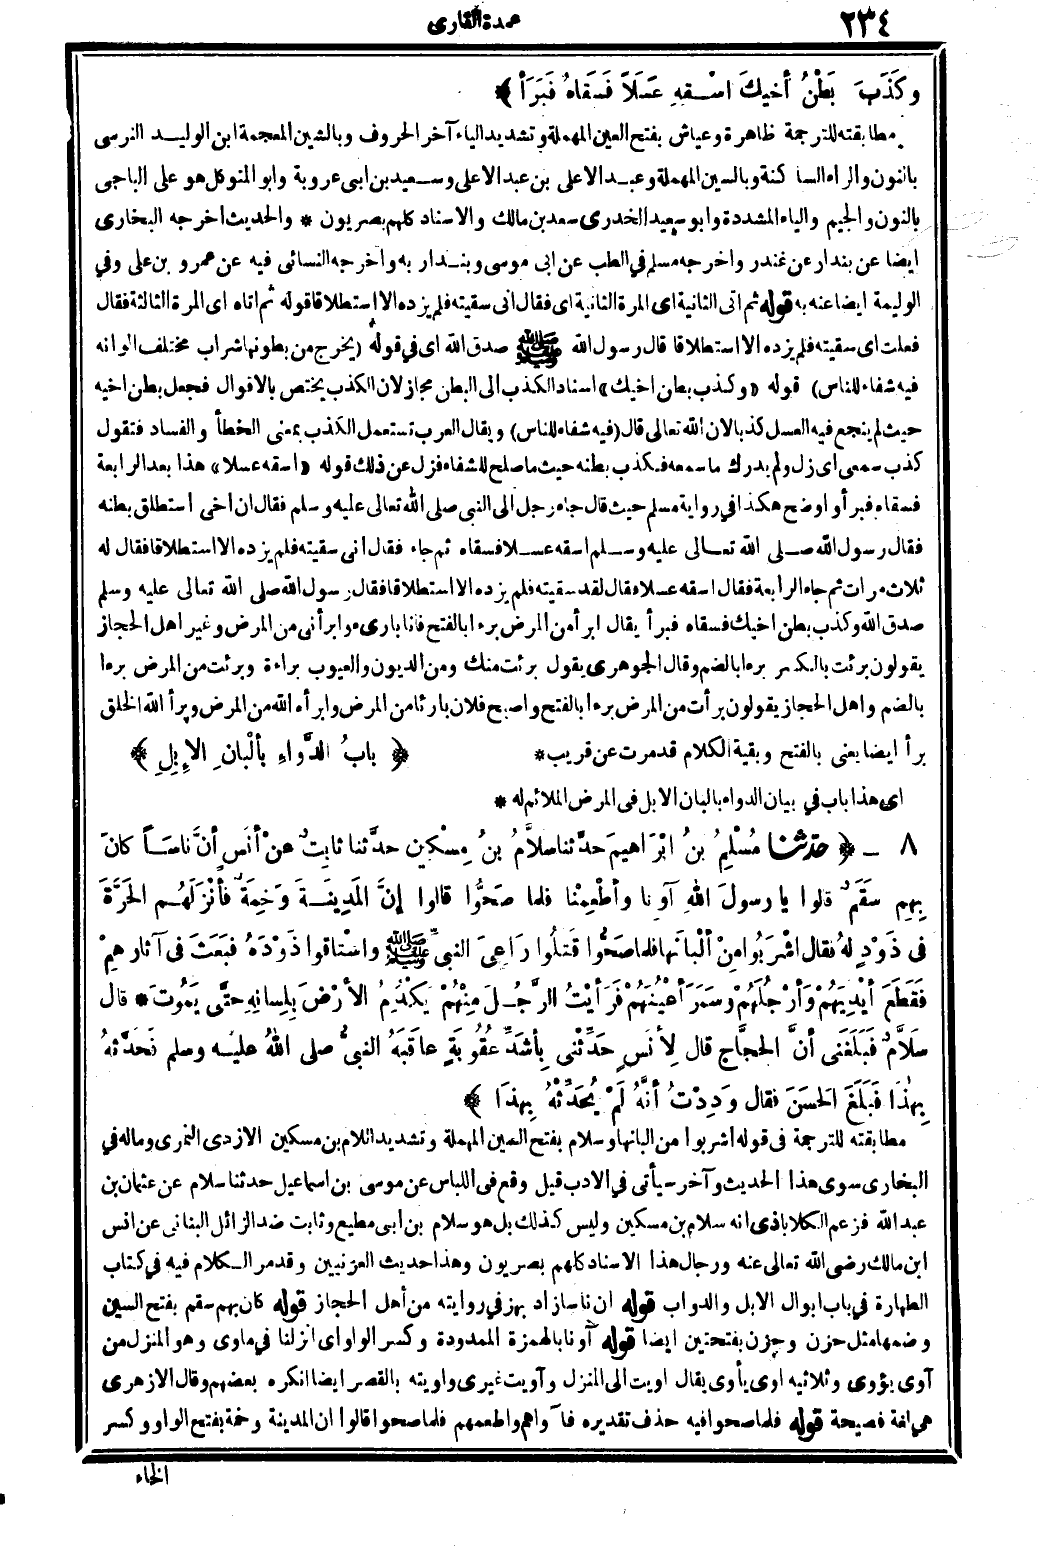 ٢٣٤
عمدة القارى
وكَذَبَ بَطْنُ أخيكَ اسْقِهِ عَسَلاً فَسَقَاهُ فَبَرَأ ﴾
مطابقته للترجمة ظاهرة وعياش بفتح العين المهملة وتشديد الياء آخر الحروف وبالشين المعجمة ابن الوليد النرسى
بالنون والراء الساكنة وبالسين المهملة وعبد الاعلى بن عبد الاعلى وسعيد بن ابى عروبة وابو المتوكل هو على الباجى
بالنون والجيم والياء المشددة وابو سعيد الخدرى سعد بن مالك والاسناد كلهم بصريون * والحديث اخرجه البخارى
ايضا عن بندار عن غندر واخرجه مسلم في الطب عن ابى موسى وبندار به واخرجه النسائى فيه عن عمرو بن على وفي
الوليمة ايضا عنه به قوله ثم اتى الثانية اى المرة الثانية اى فقال انى سقيته فلم يزده الا استطلاقا قوله ثم اتاه اى المرة الثالثة فقال
فعلت اى سقيته فلم يزده الا استطلاقا قال رسول الله ﷺ صدق الله اى في قوله (يخرج من بطونها شراب مختلف الوانه
فيه شفاء للناس) قوله «وكذب بطن اخيك» اسناد الكذب الى البطن مجاز لان الكذب يختص بالاقوال فجعل بطن اخيه
حيث لم ينجع فيه العسل كذبا لان الله تعالى قال (فيه شفاء للناس) ويقال العرب تستعمل الكذب بمعنى الخطأ والفساد فتقول
كذب سمعى اى زل ولم يدرك ما سمعه فكذب بطنه حيث ما صلح للشفاء فزل عن ذلك قوله «اسقه عسلا» هذا بعد الرابعة
فسقاه فبرأ واوضح هكذا في رواية مسلم حيث قال جاء رجل الى النبي صلى الله تعالى عليه وسلم فقال ان أخى استطلق بطنه
فقال رسول الله صلى الله تعالى عليه وسلم اسقه عسلا فسقاه ثم جاء فقال انى سقيته فلم يزده الا استطلاقا فقال له
ثلاث مرات ثم جاء الرابعة فقال اسقه عسلا فقال لقد سقيته فلم يزده الا استطلاقا فقال رسول الله صلى الله تعالى عليه وسلم
صدق الله وكذب بطن اخيك فسقاه فبرأ يقال ابرأ من المرض برءا بالفتح فانا بارىء وابرأنى من المرض وغير اهل الحجاز
يقولون برئت بالكسر برءا بالضم وقال الجوهرى يقول برئت منك ومن الديون والعيوب براءة وبرئت من المرض برءا
بالضم واهل الحجاز يقولون برأت من المرض برءا بالفتح واصبح فلان بارئا من المرض وابرأه الله من المرض وبرأ الله الخلق
برأ ايضا يعنى بالفتح وبقية الكلام قدمرت عن قريب*
﴿ بابُ الدَّوَاءِ بِألْبانِ الإِبِلِ ﴾
اى هذا باب في بيان الدواء بالبان الابل فى المرض الملائم له *
٨ ــ ﴿ حدثنا مُسْلِمُ بنُ ابْرَاهِيمَ حدَّثنا سَلاَّمُ بنُ مِسْكِينٍ حدثنا ثابِتٌ عنْ أنَسٍ أنَّ ناسَاً كانَ
بِهِمِ سَقَمٌ قالوا يا رسولَ اللهِ آوِنا وأطْعِمْنا فلما صَحُّوا قالوا إنَّ المَدِينَةَ وَخِمَةٌ فأنْزَلَهُم الحَرَّةَ
في ذَوْدٍ لهُ فقال اشْرَبُوا مِنْ ألْبانَها فلما صَحُّوا قَتَلُوا رَاعِيَ النبيِّ ﷺ واسْتاقوا ذَوْدَهُ فبَعَثَ في آثارِهِمْ
فَقَطَعَ أيْدِيَهُمْ وَأرْجُلَهُمْ وسَمَرَ أعْيُنَهُمْ فَرَأيْتُ الرَّجُلَ مِنْهُمْ يَكْدُمُ الأرْضَ بِلِسانِهِ حتَّى يَمُوتَ * قال
سَلاَّمٌ فَبَلَغَنى أنَّ الحَجَّاجَ قال لِأنَسٍ حَدِّثْنى بِأشَدِّ عُقُوبَةٍ عاقَبَهُ النبيُّ صلى اللهُ عليه وسلم فَحَدَّثَهُ
بِهٰذَا فَبَلَغَ الحَسَنَ فقال وَدِدْتُ أنَّهُ لَمْ يُحَدِّثْهُ بِهذَا ﴾
مطابقته للترجمة فى قوله اشربوا من البانها وسلام بفتح السين المهملة وتشديد اللام بن مسكين الازدى النمرى وماله في
البخارى سوى هذا الحديث وآخر سيأتى في الادب قيل وقع فى اللباس عن موسى بن اسماعيل حدثنا سلام عن عثمان بن
عبد الله فزعم الكلاباذى انه سلام بن مسكين وليس كذلك بل هو سلام بن أبى مطيع وثابت ضد الزائل البنانى عن انس
ابن مالك رضى الله تعالى عنه ورجال هذا الاسناد كلهم بصريون وهذا حديث العرنيين وقد مر الكلام فيه في كتاب
الطهارة في باب ابوال الابل والدواب قوله ان ناسا زاد بهز في روايته من أهل الحجاز قوله كان بهم سقم بفتح السين
وضمها مثل حزن وحزن بفتحتين ايضا قوله آونا بالهمزة الممدودة وكسر الواو اى انزلنا في ماوى وهو المنزل من
آوى يؤوى وثلاثيه اوى يأوى يقال اويت الى المنزل وآويت غيرى واويته بالقصر ايضا انكره بعضهم وقال الازهرى
هى لغة فصيحة قوله فلما صحوا فيه حذف تقديره فآواهم واطعمهم فلما صحوا قالوا ان المدينة وخمة بفتح الواو وكسر
الخاء